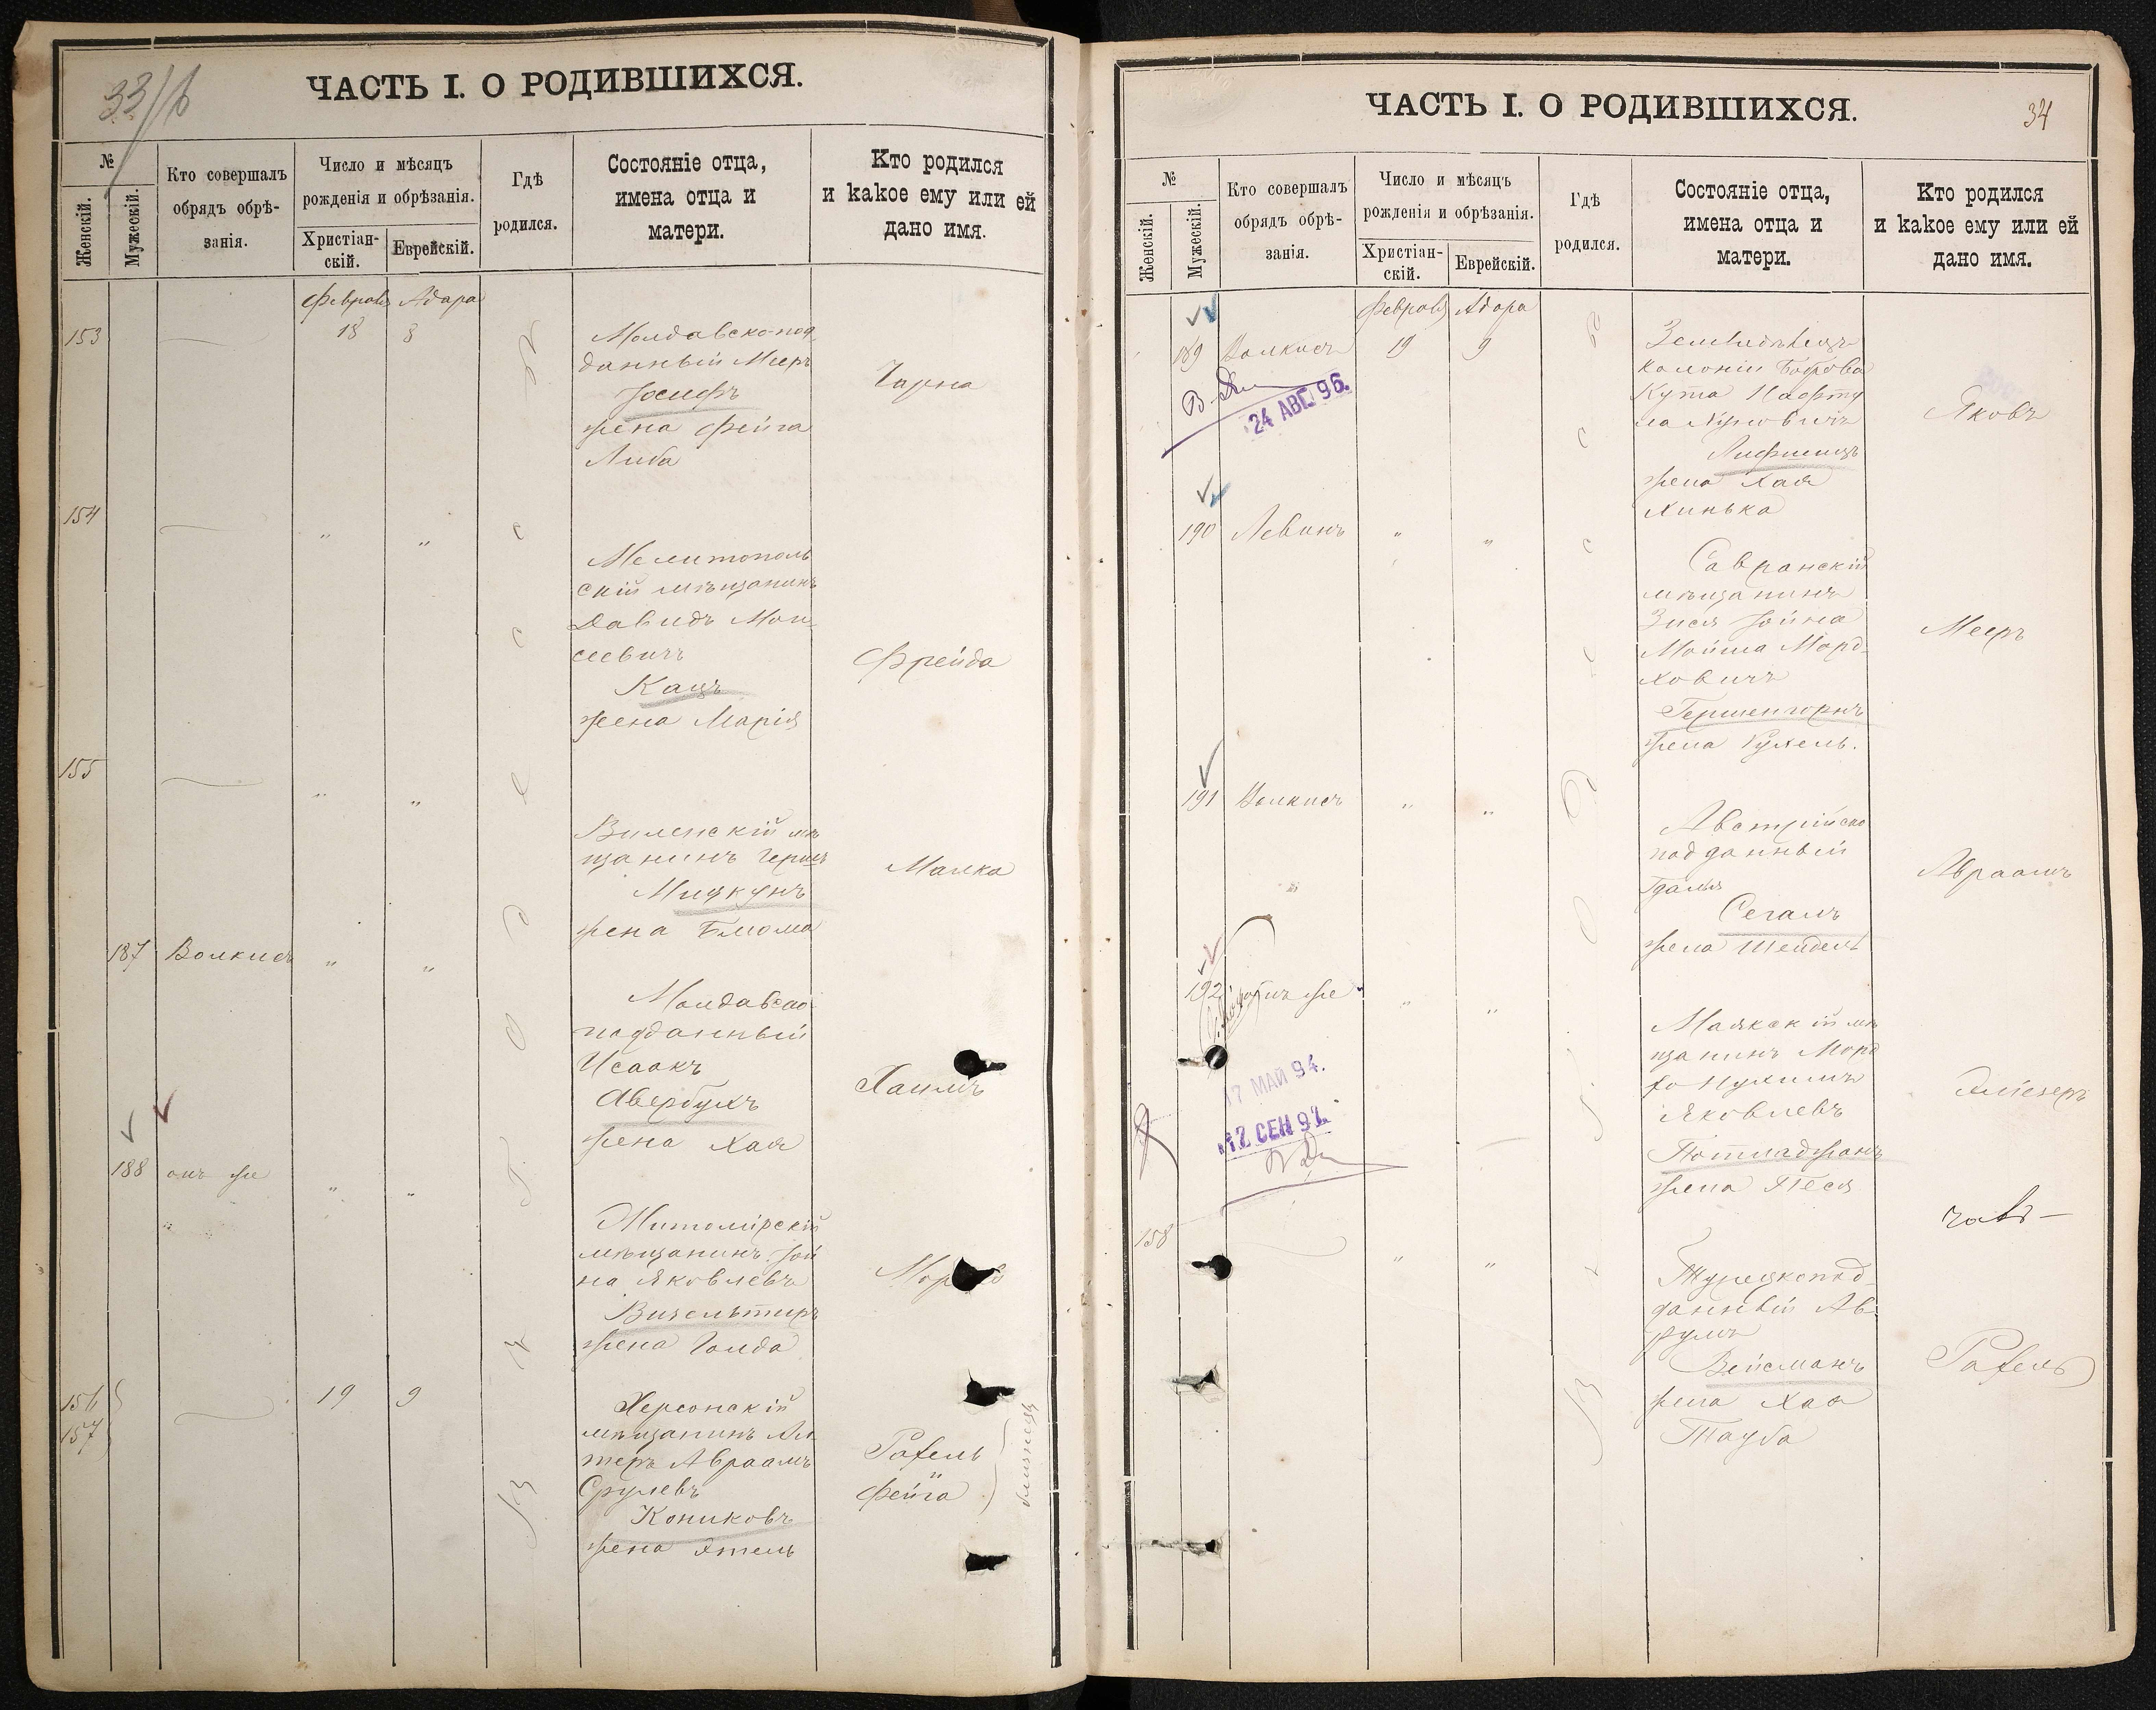 33/б
ЧАСТЬ I. О РОДИВШИХСЯ.
№
Женскій.
Мужескій.
Кто совершалъ
обрядъ обрѣ-
занія.
Число и мѣсяцъ
рожденія и обрѣзанія.
Христіан-
скій.
Еврейскій.
Гдѣ
родился.
Состояніе отца,
имена отца и
матери.
Кто родился
и какое ему или ей
дано имя.
Февраля Адара
153 18 8
Молдавско-под
данный Мееръ
Іосифъ
жена Фейга
Либа
Чарна
154 „ „
Мелитополь
скій мѣщанинъ
Давидъ Мои-
сеевичъ
Кацъ
жена Марія
Фрейда
155 „ „
Виленскій мѣ
щанинъ Гершъ
жена Блюма
Малка
187 Волкисъ „ „
Молдавско
подданный
Исаакъ
Авербухъ
жена Хая
Хаимъ
188 онъ же „ „
Житомірскій
мѣщанинъ Іой
на Яковлевъ
жена Голда
156
157
19 9
Херсонскій
мѣщанинъ Ал
теръ Авраамъ
Срулевъ
Кониковъ
жена Этель
Рахель
Фейга
близнецы
ЧАСТЬ I. О РОДИВШИХСЯ.
34
№
Женскій.
Мужескій.
Кто совершалъ
обрядъ обрѣ-
занія.
Число и мѣсяцъ
рожденія и обрѣзанія.
Христіан-
скій.
Еврейскій.
Гдѣ
родился.
Состояніе отца,
имена отца и
матери.
Кто родился
и какое ему или ей
дано имя.
Февраля Адара
189 Волкисъ 19 9
24 АВГ 96.
Земледѣлецъ
колоніи Боброва
Кута Нафту
ла
Лифшицъ
жена Хая
Хинька
Яковъ
190 Левинъ „ „
Савранскій
мѣщанинъ
Зися Іойна
Мойша Морд-
ховичъ
Гершенгорнъ
жена Рухель.
Мееръ
191 Волкисъ „ „
Австрійско
подданный
Гдалья
Сегалъ
жена Шейдель
Авраамъ
192 онъ же „ „
17 МАЙ 94.
12 СЕН 97.
Маякскій мѣ
щанинъ Морд
ко Нухимъ
Яковлевъ
жена Песя
Эліезеръ
158 „ „
Турецкоподд-
данный Ав-
румъ
Вейсманъ
жена Хая
Тауба
Рахель